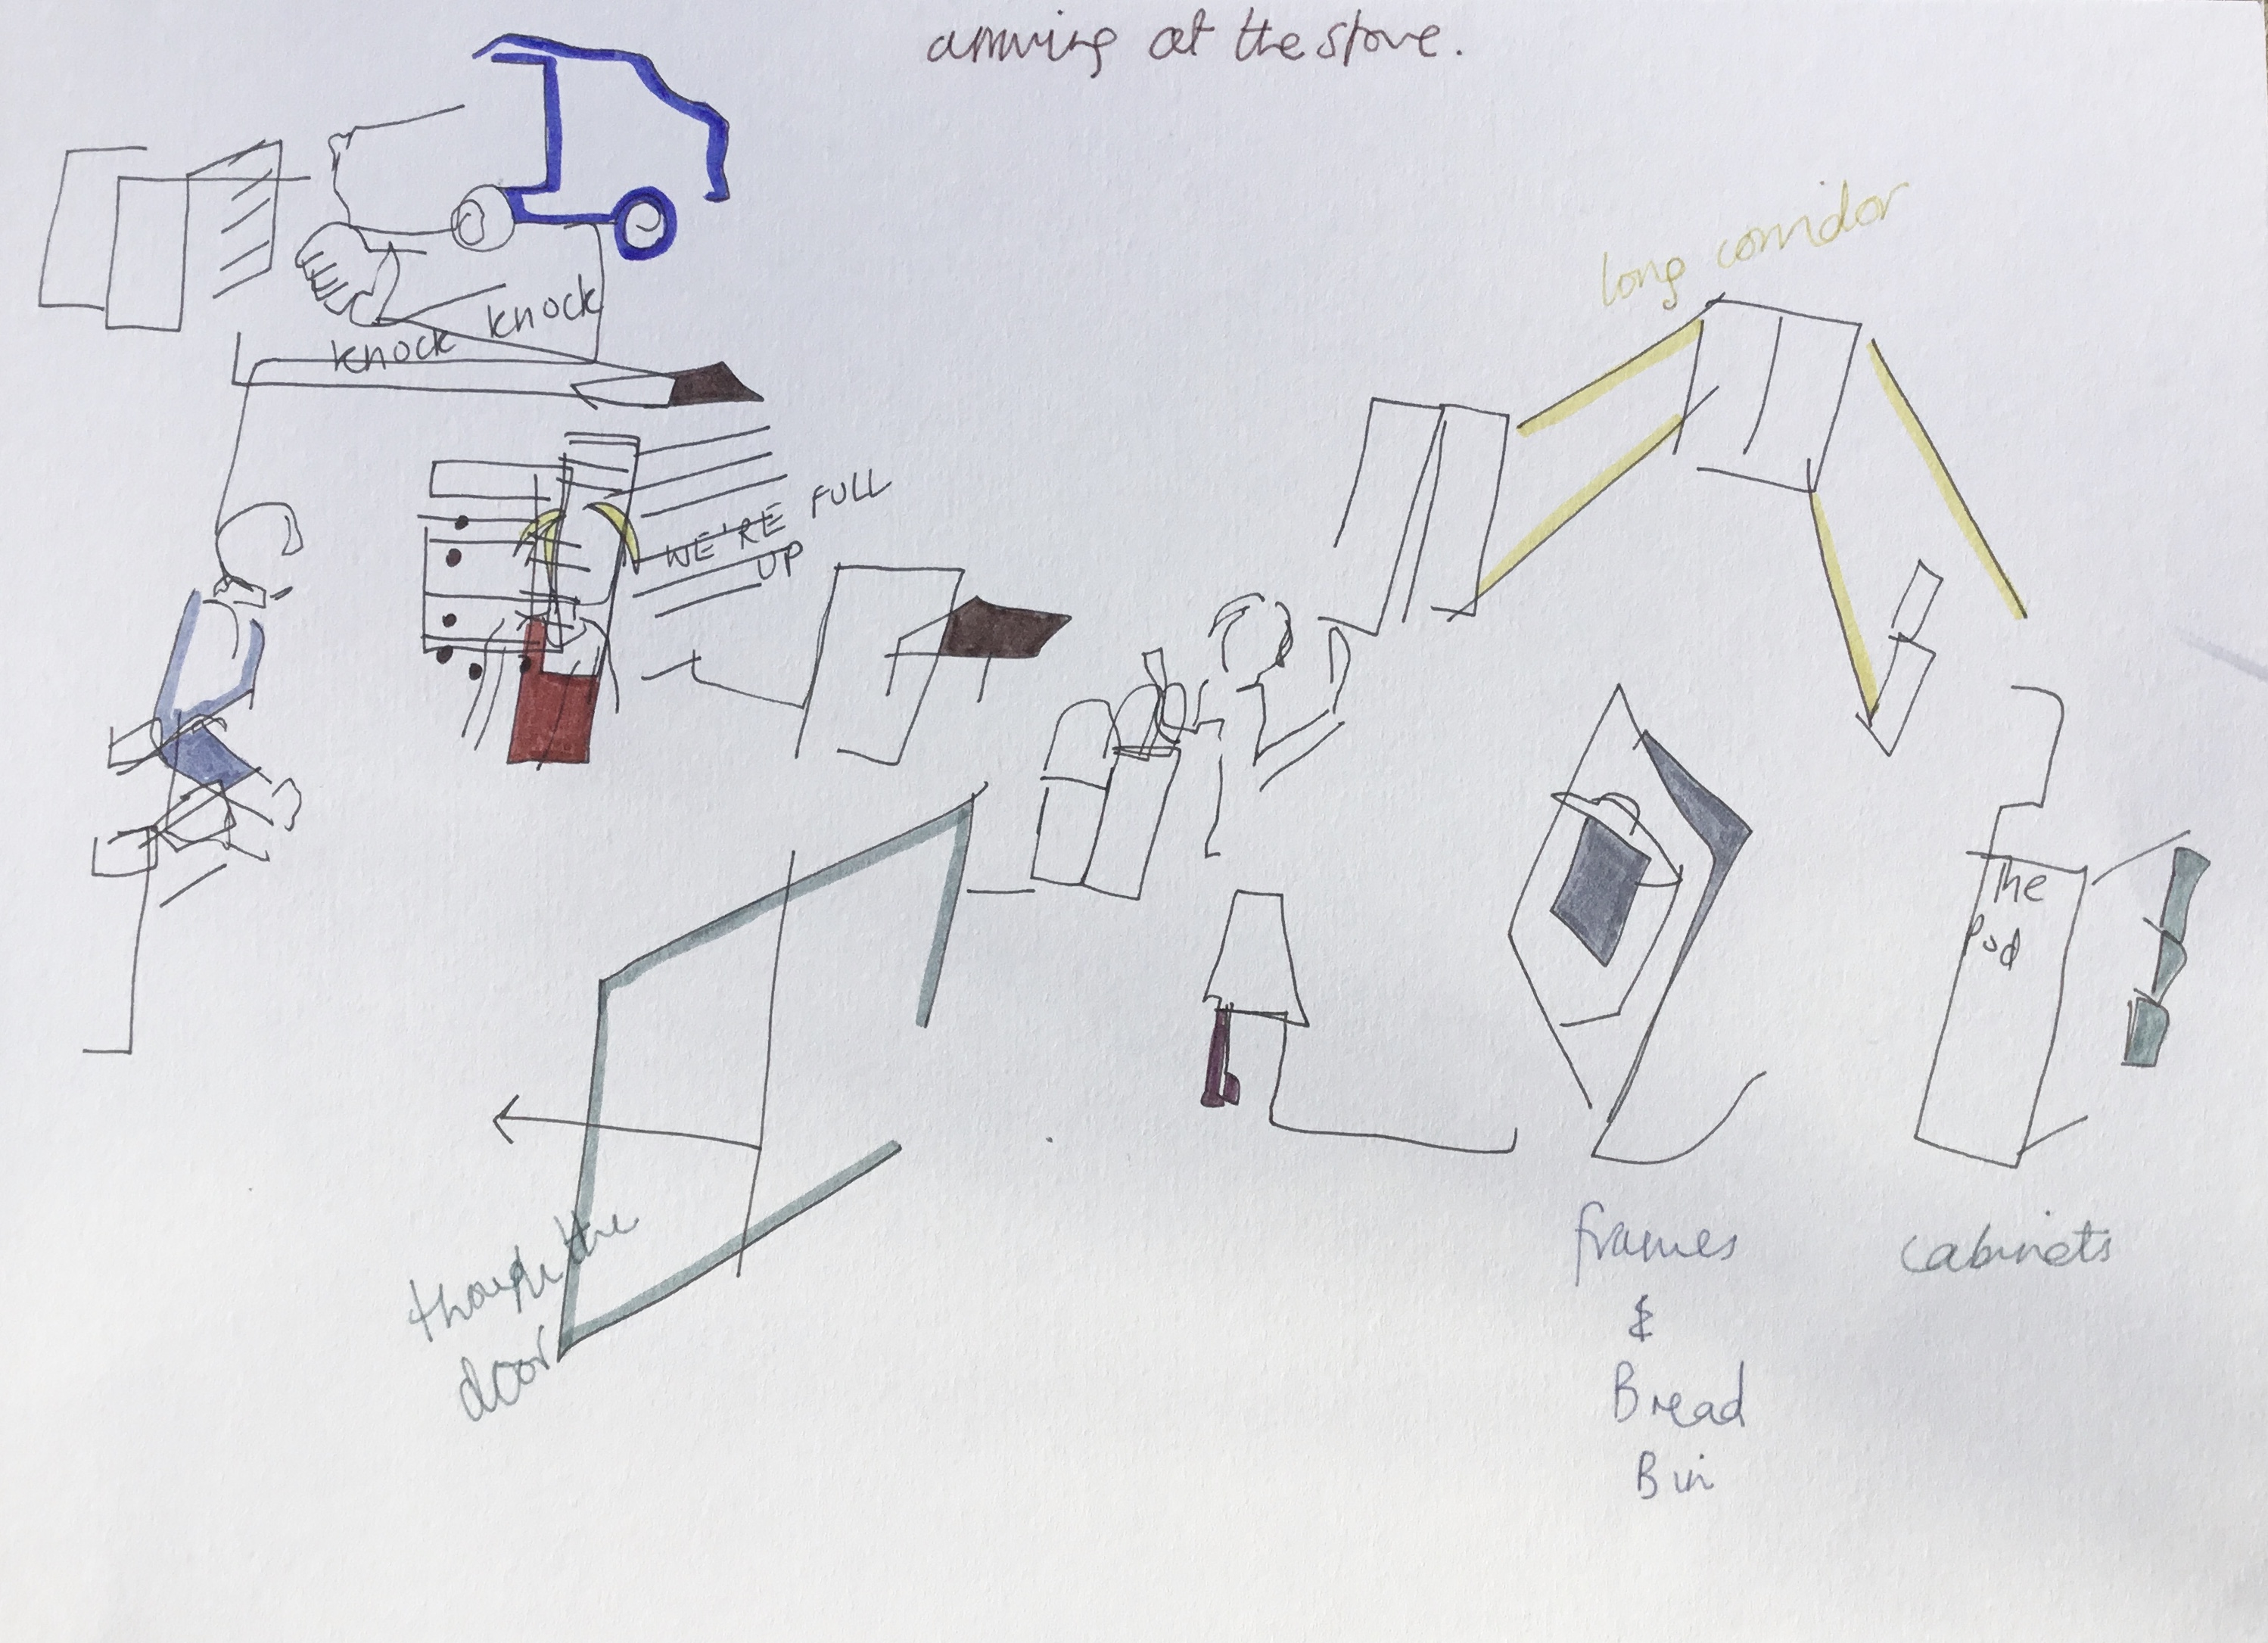 arriving at the store.
long corridor
knock knock
WE'RE FULL
UP
The
Pod
though the
door
frames
&
Bread
Bin
cabinets